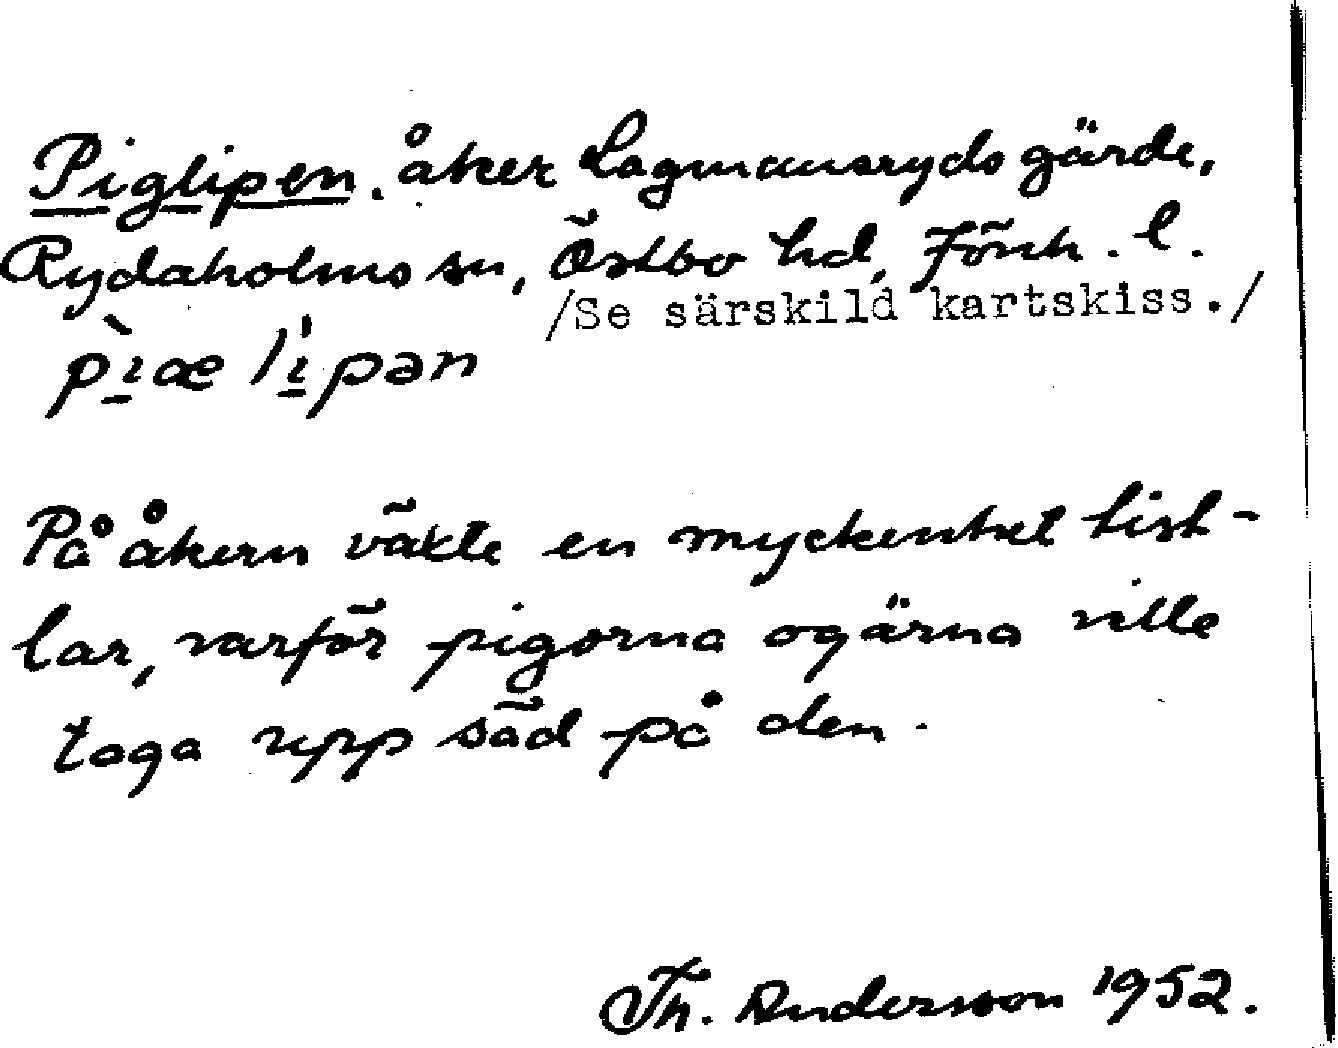 Piglipen. åker Lagmansryds gärde,
Rydaholms sn, Östbo hd, Jönk. l.
/Se särskild kartskiss./
pìæ lípən
På åkern växte en myckenhet tist-
lar, varför pigorna ogärna ville
taga upp säd på den.
Th. Andersson 1952.